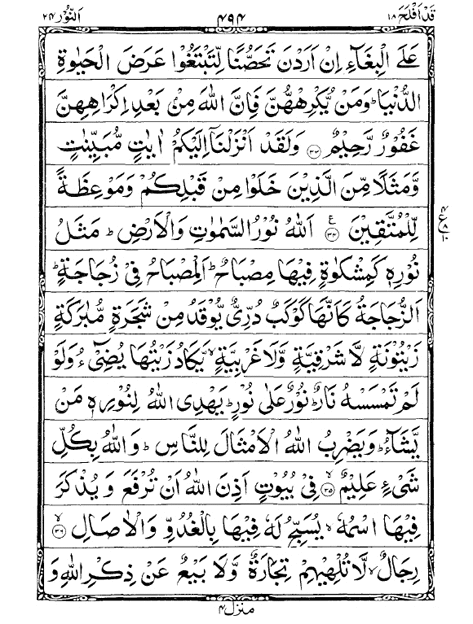 قد افلح ١٨ ٤٩٤ النّور ٢٤
عَلَى الْبِغَآءِ اِنْ اَرَدْنَ تَحَصُّنًا لِّتَبْتَغُوْا عَرَضَ الْحَيٰوةِ
الدُّنْيَا ؕ وَمَنْ يُّكْرِهْهُّنَّ فَاِنَّ اللّٰهَ مِنْۢ بَعْدِ اِكْرَاهِهِنَّ
غَفُوْرٌ رَّحِيْمٌ ﴿٣٣﴾ وَلَقَدْ اَنْزَلْنَاۤ اِلَيْكُمْ اٰيٰتٍ مُّبَيِّنٰتٍ
وَّمَثَلًا مِّنَ الَّذِيْنَ خَلَوْا مِنْ قَبْلِكُمْ وَمَوْعِظَةً
لِّلْمُتَّقِيْنَ ﴿٣٤﴾ اَللّٰهُ نُوْرُ السَّمٰوٰتِ وَالْاَرْضِ ؕ مَثَلُ
نُوْرِهٖ كَمِشْكٰوةٍ فِيْهَا مِصْبَاحٌ ؕ اَلْمِصْبَاحُ فِيْ زُجَاجَةٍ ؕ
اَلزُّجَاجَةُ كَاَنَّهَا كَوْكَبٌ دُرِّيٌّ يُّوْقَدُ مِنْ شَجَرَةٍ مُّبٰرَكَةٍ
زَيْتُوْنَةٍ لَّا شَرْقِيَّةٍ وَّلَا غَرْبِيَّةٍ ۙ يَّكَادُ زَيْتُهَا يُضِيْٓءُ وَلَوْ
لَمْ تَمْسَسْهُ نَارٌ ؕ نُوْرٌ عَلٰى نُوْرٍ ؕ يَهْدِى اللّٰهُ لِنُوْرِهٖ مَنْ
يَّشَآءُ ؕ وَيَضْرِبُ اللّٰهُ الْاَمْثَالَ لِلنَّاسِ ؕ وَاللّٰهُ بِكُلِّ
شَيْءٍ عَلِيْمٌ ﴿٣٥﴾ۙ فِيْ بُيُوْتٍ اَذِنَ اللّٰهُ اَنْ تُرْفَعَ وَيُذْكَرَ
فِيْهَا اسْمُهٗ ۙ يُسَبِّحُ لَهٗ فِيْهَا بِالْغُدُوِّ وَالْاٰصَالِ ﴿٣٦﴾ۙ
رِجَالٌ ۙ لَّا تُلْهِيْهِمْ تِجَارَةٌ وَّلَا بَيْعٌ عَنْ ذِكْرِ اللّٰهِ وَ
منزل ٤